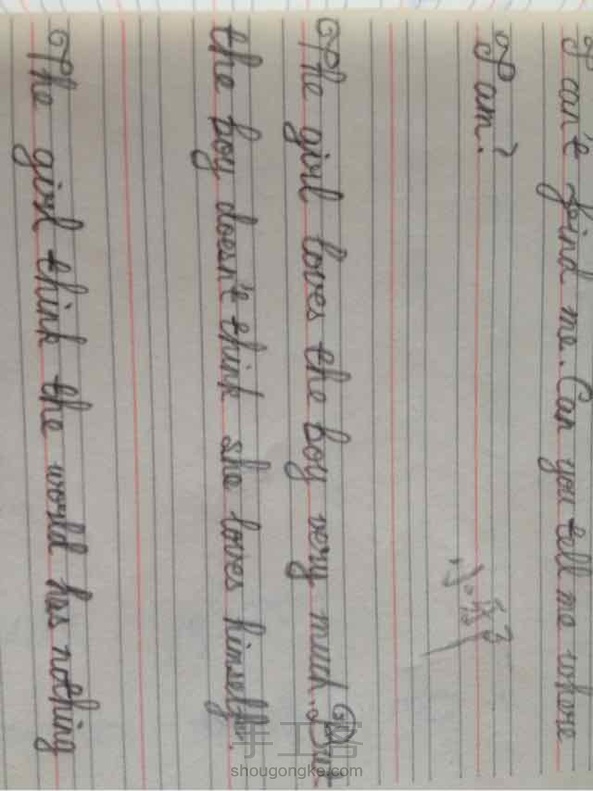 I can't find me. Can you tell me where
I am?
The girl loves the boy very much. But
the boy doesn't think she loves himself.
The girl think the world has nothing
手工客
shougongke.com